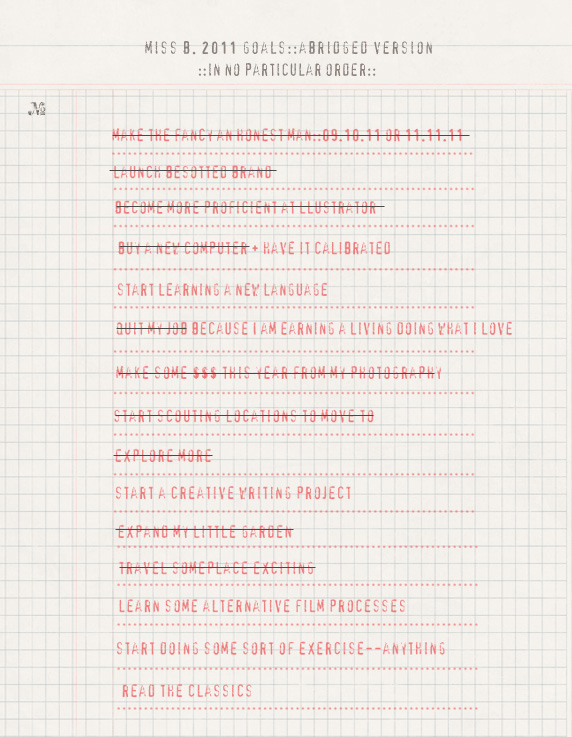 MISS B. 2011 GOALS::ABRIDGED VERSION
::IN NO PARTICULAR ORDER::
MAKE THE FANCY AN HONEST MAN::09.10.11 OR 11.11.11
LAUNCH BESOTTED BRAND
BECOME MORE PROFICIENT AT LLUSTRATOR
BUY A NEW COMPUTER + HAVE IT CALIBRATED
START LEARNING A NEW LANGUAGE
QUIT MY JOB BECAUSE I AM EARNING A LIVING DOING WHAT I LOVE
MAKE SOME $$$ THIS YEAR FROM MY PHOTOGRAPHY
START SCOUTING LOCATIONS TO MOVE TO
EXPLORE MORE
START A CREATIVE WRITING PROJECT
EXPAND MY LITTLE GARDEN
TRAVEL SOMEPLACE EXCITING
LEARN SOME ALTERNATIVE FILM PROCESSES
START DOING SOME SORT OF EXERCISE--ANYTHING
READ THE CLASSICS